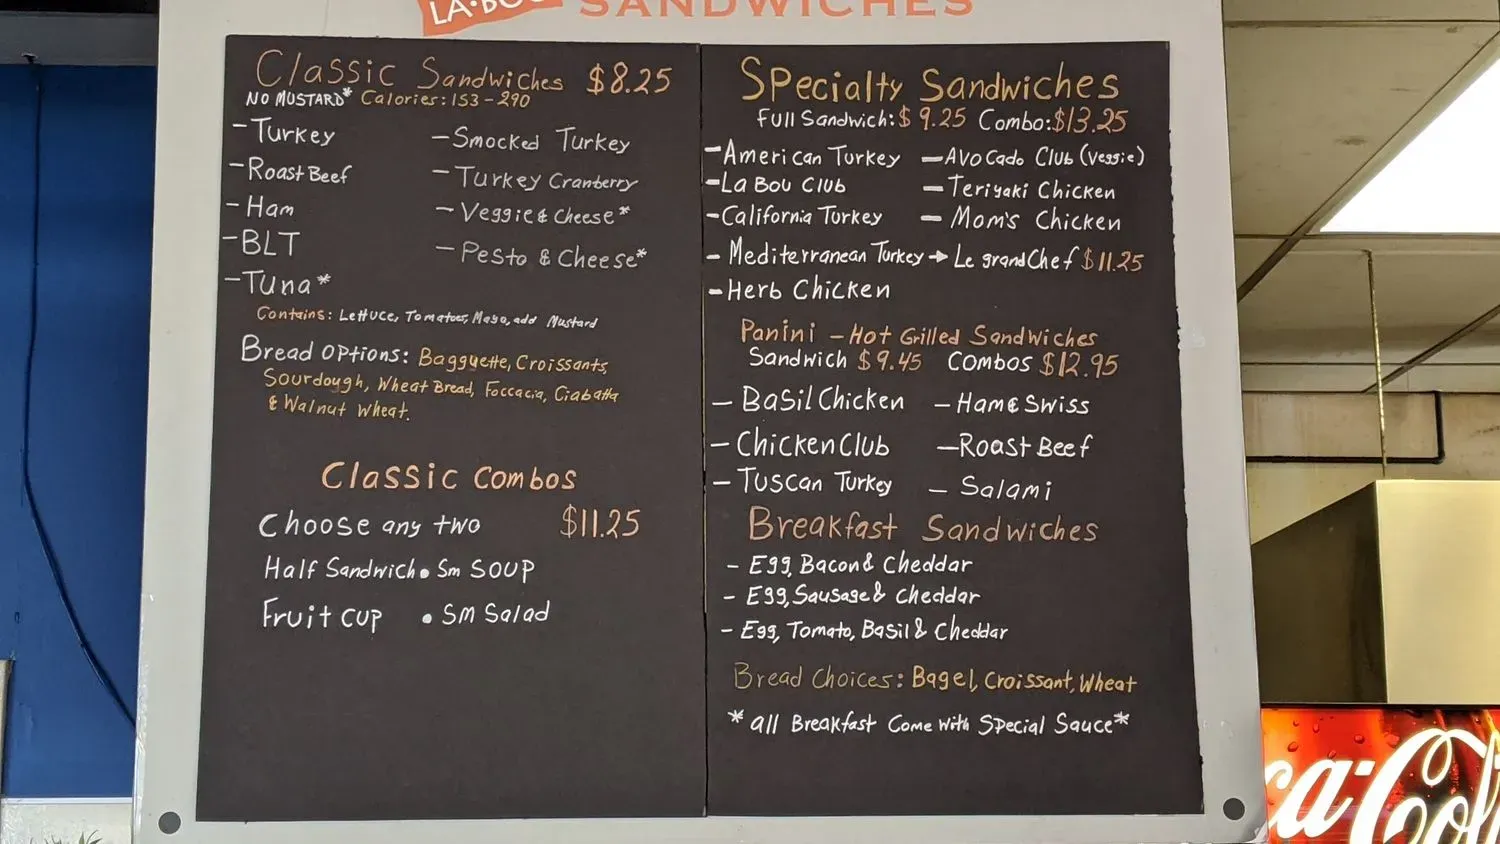 LA·BOU
SANDWICHES
Classic Sandwiches $8.25
NO MUSTARD* Calories: 153-290
-Turkey
-Roast Beef
-Ham
-BLT
-Tuna*
-Smocked Turkey
-Turkey Cranberry
-Veggie & Cheese*
-Pesto & Cheese*
Contains: Lettuce, Tomatoes, Mayo, add Mustard
Bread Options: Bagguette, Croissants,
Sourdough, Wheat Bread, Foccacia, Ciabatta
& Walnut Wheat.
Classic Combos
Choose any two $11.25
Half Sandwich • Sm Soup
Fruit Cup • Sm Salad
Specialty Sandwiches
Full Sandwich: $9.25 Combo: $13.25
-American Turkey
-La Bou Club
-California Turkey
-Mediterranean Turkey
-Herb Chicken
-Avocado Club (Veggie)
-Teriyaki Chicken
-Mom's Chicken
→ Le grand Chef $11.25
Panini - Hot Grilled Sandwiches
Sandwich $9.45 Combos $12.95
-Basil Chicken
-Chicken Club
-Tuscan Turkey
-Ham & Swiss
-Roast Beef
-Salami
Breakfast Sandwiches
-Egg, Bacon & Cheddar
-Egg, Sausage & Cheddar
-Egg, Tomato, Basil & Cheddar
Bread Choices: Bagel, Croissant, Wheat
*all Breakfast Come with Special Sauce*
ca-Col